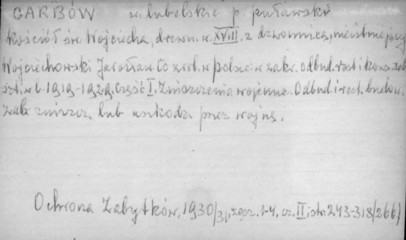 GARBÓW w. lubelskie p. puławski
Kościół św. Wojciecha, drewn. w. XVIII. z dzwonnicą, nieistniejący
Wojciechowski Jarosław Co zrob. w Polsce w zakr. odbud. rest. i konserw.
szt. w l. 1919-1929. Część I. Zniszczenia wojenne. Odbud. i rest. budow.
zab. zniszcz. lub uszkodz. przez wojnę.
Ochrona Zabytków, 1930/31, zesz. 1-4, cz. II str. 243-318 (266)